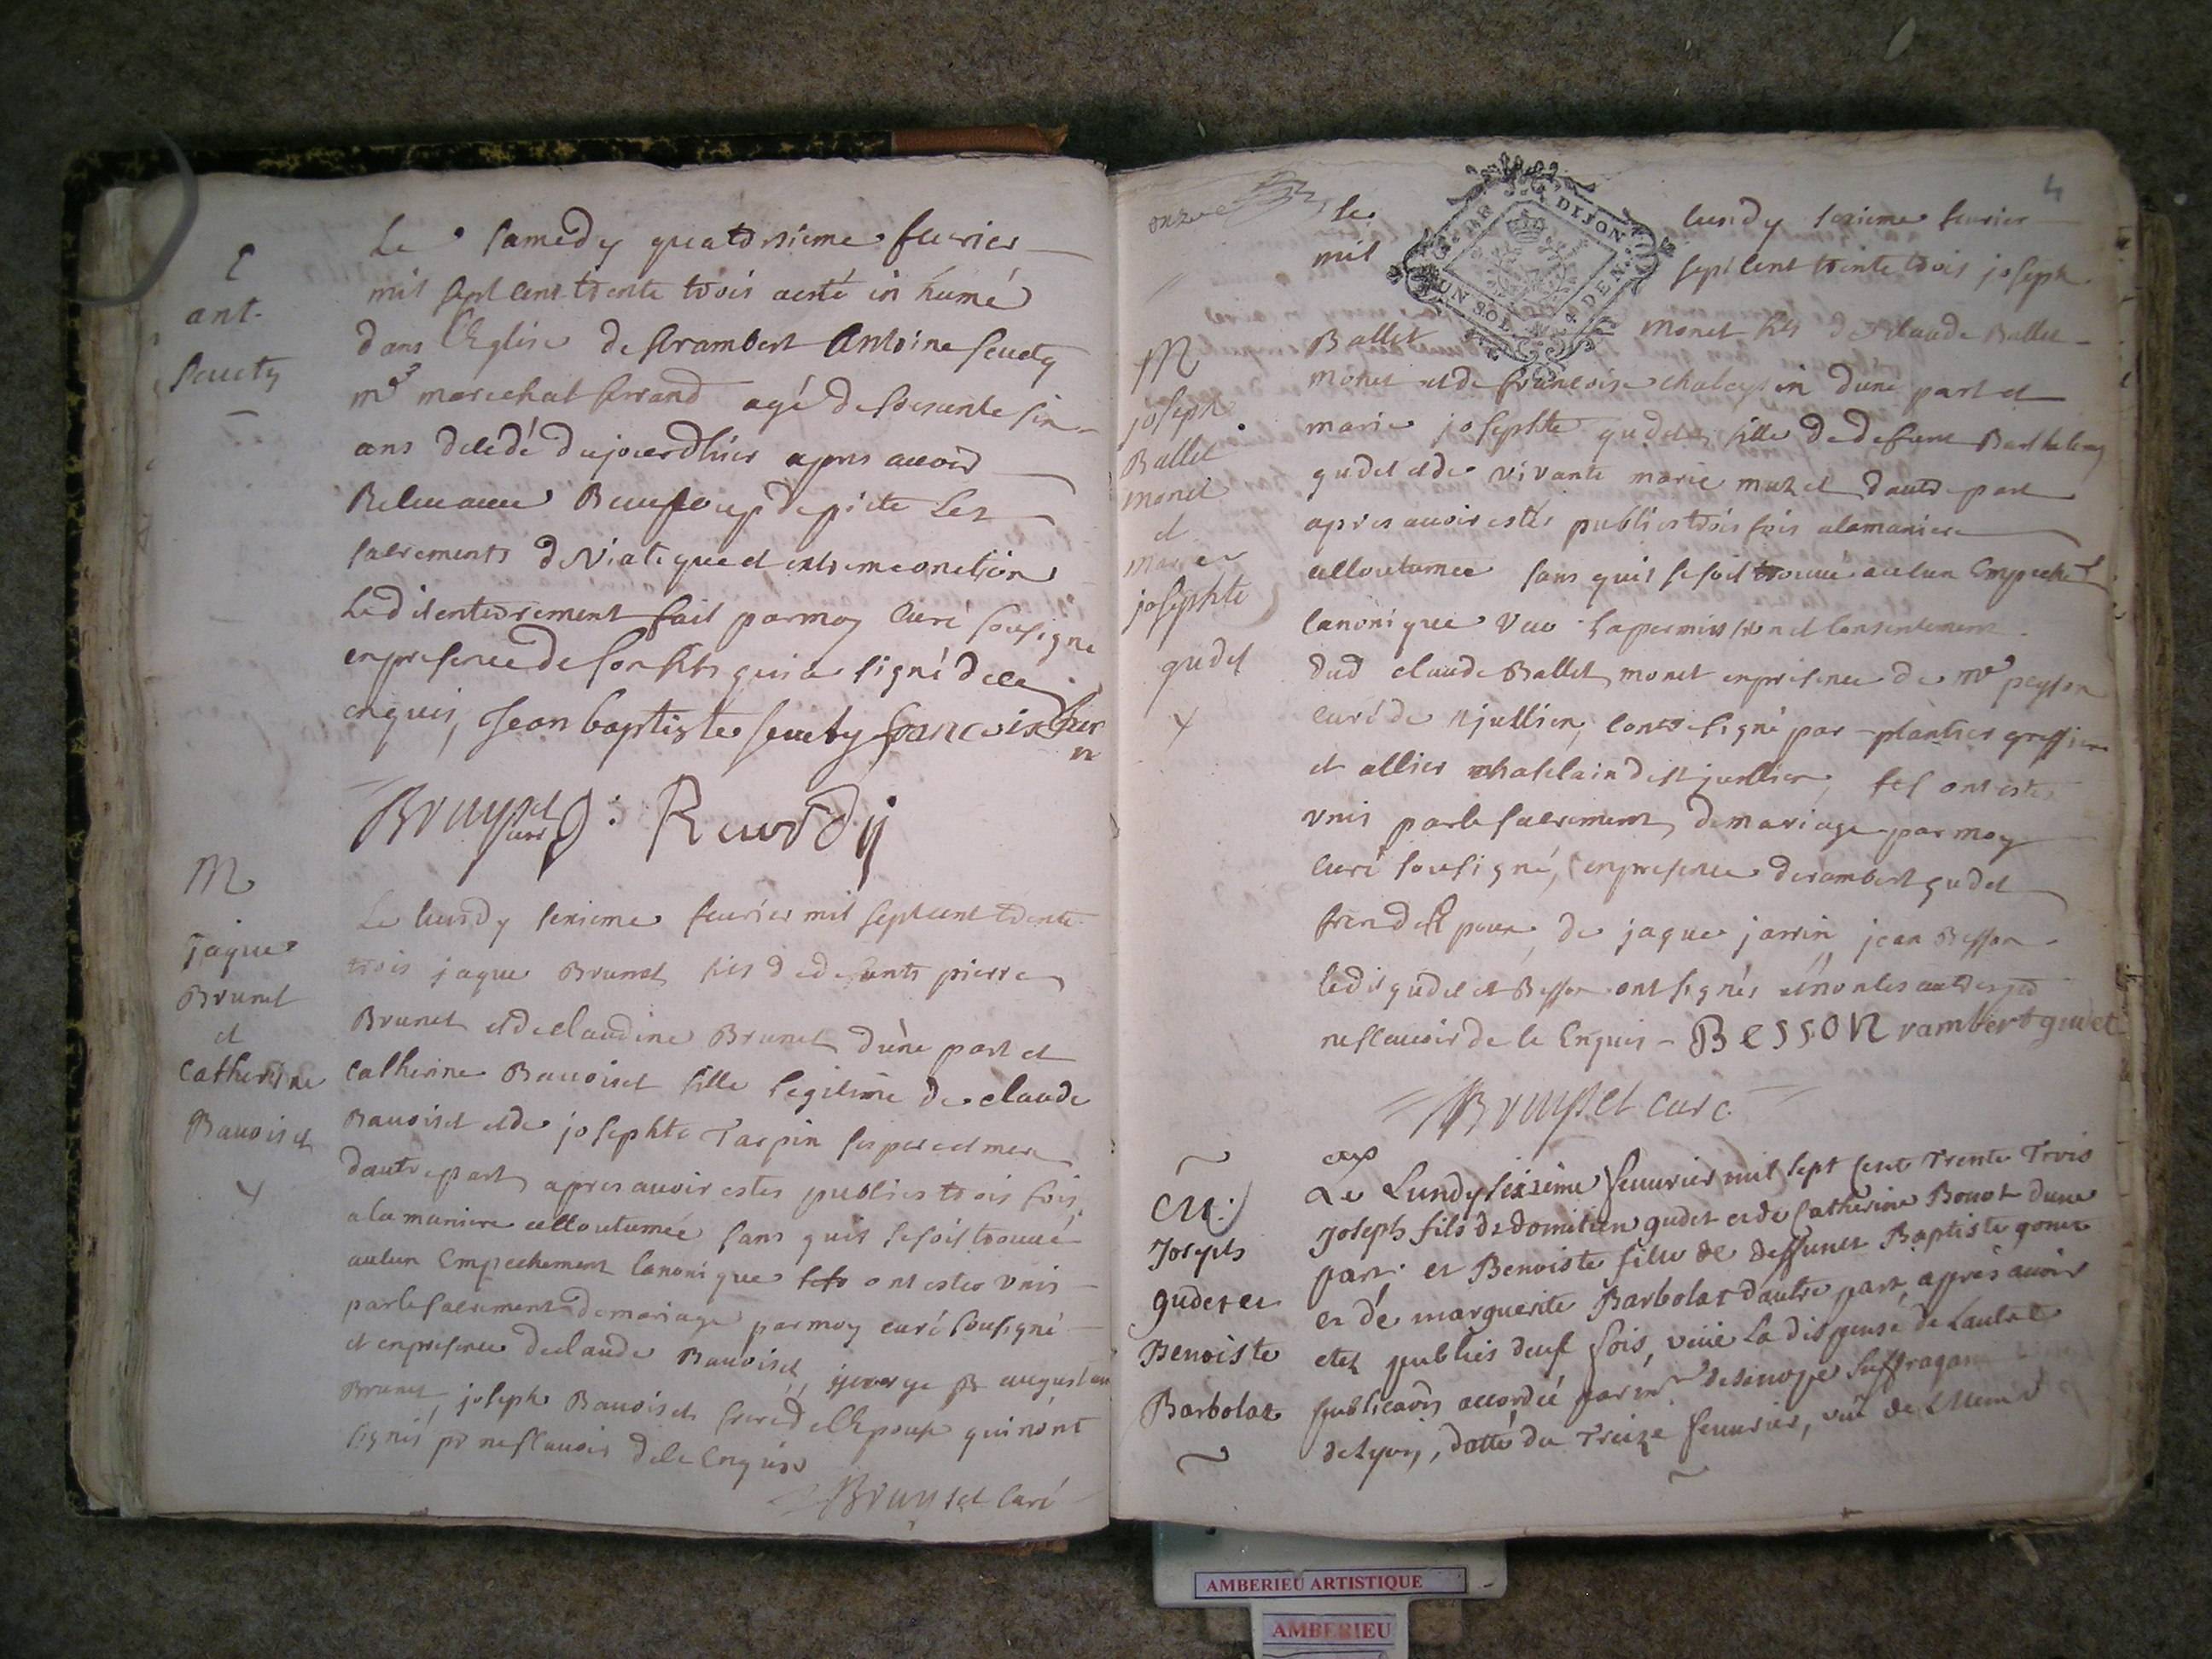 E
ant.
Seucty
Le samedy quatorsieme feuvrier
mil sept cens trente trois a esté in humé
dans l'Eglise de st rambert Antoine Seucty
me marechal ferrand agé de soixante six
ans decedé d'ujourdhier apres auoir
Receu avec Beaucoup de pieté Les
sacrements de Viatique et extremeonction
Ledit enterrement fait par moy curé sousigné
en presence de son fils qui a signé de ce
enquis, Jean baptiste Seuety francois
Bruyset curé J: Revrdy
M
jaque
Brunet
et
Catherine
Bauoiset
Le lundy sexieme feurier mil sept cent trente
trois jaque Brunet fils de defunts pierre
Brunet et de claudine Brunet d'une part et
Catherine Bauoiset fille legitime de claude
Bauoiset et de josephte Tarpin ses pere et mere
dautre part apres auoir estes publies trois fois
a la maniere accoutumée sans quil se soit trouué
aucun Empechement canonique ont estes Vnis
par le sacrement de mariage par moy curé sousigné
et en presence de claude Bauoiset, george augustin
Brunet, joseph Bauoiset frere de lEpouse qui nont
signés pr ne scauoir de ce enquis
Bruyset Curé
onze
4
GEN DE DIJON
UN SOL 4 DEN.
le lundy sexieme feurier
mil sept cent trente trois joseph
Ballet monet fils de Claude Ballet
M
joseph
Ballet
monet
et
marie
josephte
gudet
monet et de francoise chabeysin dune part et
marie josephte gudet fille de defunt Barthelemy
gudet et de vivante marie muzet dautre part
apres auoir estés publies trois fois a la maniere
accoutumée sans quil se soit trouué aucun Empechet
canonique Veu la permission et consentement
dud claude Ballet monet en presence de mre peysson
curé de st jullien, contresigné par plantier greffier
et allier chatelain de st jullien, ont estes
vnis par le sacrement de mariage par moy
curé sousigné, en presence de rambert gudet
frere de lEpouse, de jaque jarrin, jean Besson
ledit gudet et Besson ont signés et non les autres pr
ne scauoir de ce Enquis - BESSON rambert gudet
Bruyset curé
M:
Joseph
gudet et
Benoiste
Barbolat
Le Lundy seizième feuurier mil sept cent Trente Trois
joseph fils de domitien gudet et de Catherine Bonot dune
part. et Benoiste fille de deffunct Baptiste gonet
et de marguerite Barbolat dautre part, apres auoir
etez publies deux fois, veüe La dispense de Lautre
publicaon accordée par mr de sinope suffragant
de Lyon, datté du Treize feuurier, veu de